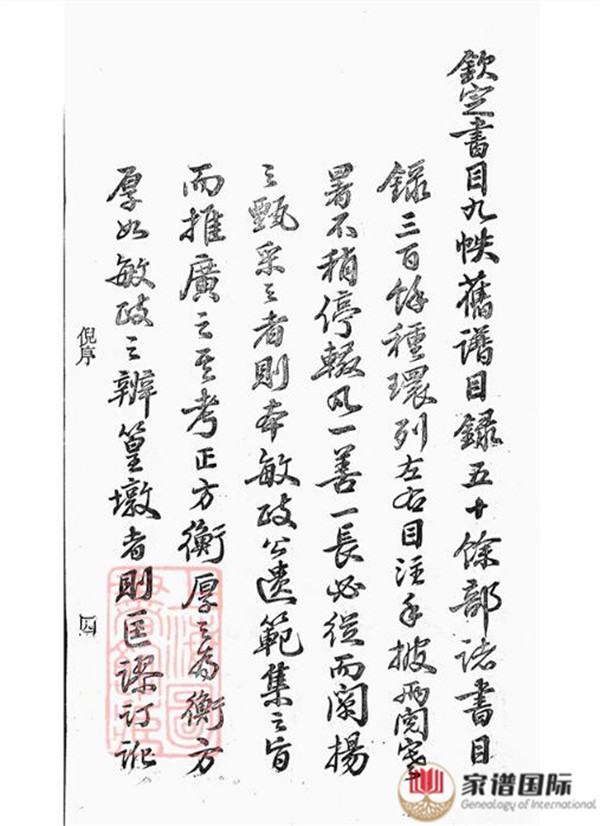 欽定書目九帙舊譜目錄五十餘部諸書目
錄三百餘種環列左右目注手披兩閱寒
暑不稍停輟凡一善一長必從而闡揚
之甄采之者則本敏政公遺範集之旨
而推廣之其考正方衡厚之為衡方
厚如敏政之辨篁墩者則匡謬訂訛
倪序
四
家谱国际
Genealogy of International